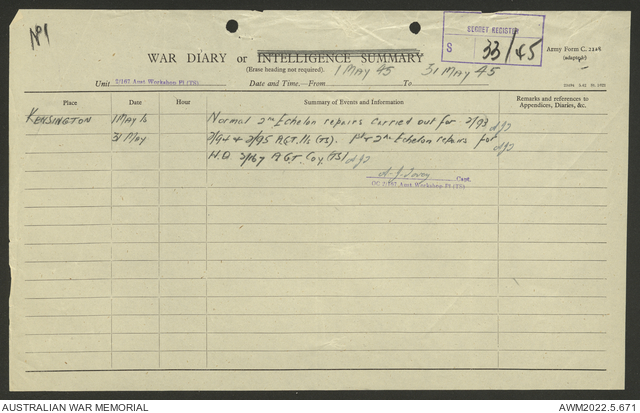 No 1
SECRET REGISTER
S 33/45
WAR DIARY or INTELLIGENCE SUMMARY
Army Form C. 2118
(adapted)
(Erase heading not required).
1 MAY 45 31 MAY 45
Unit 2/167 Aust Workshop Pl (TS) Date and Time.—From To
Place Date Hour Summary of Events and Information Remarks and references to
Appendices, Diaries, &c.
KENSINGTON 1 May to Normal 2nd Echelon repairs carried out for 2/93
31 May 2/94 & 2/95 A.G.T. (TS). 1st & 2nd Echelon repairs for
H.Q. 2/167 A.G.T. Coy (TS)
Capt.
OC 2/167 Aust Workshop Pl (TS)
AUSTRALIAN WAR MEMORIAL AWM2022.5.671